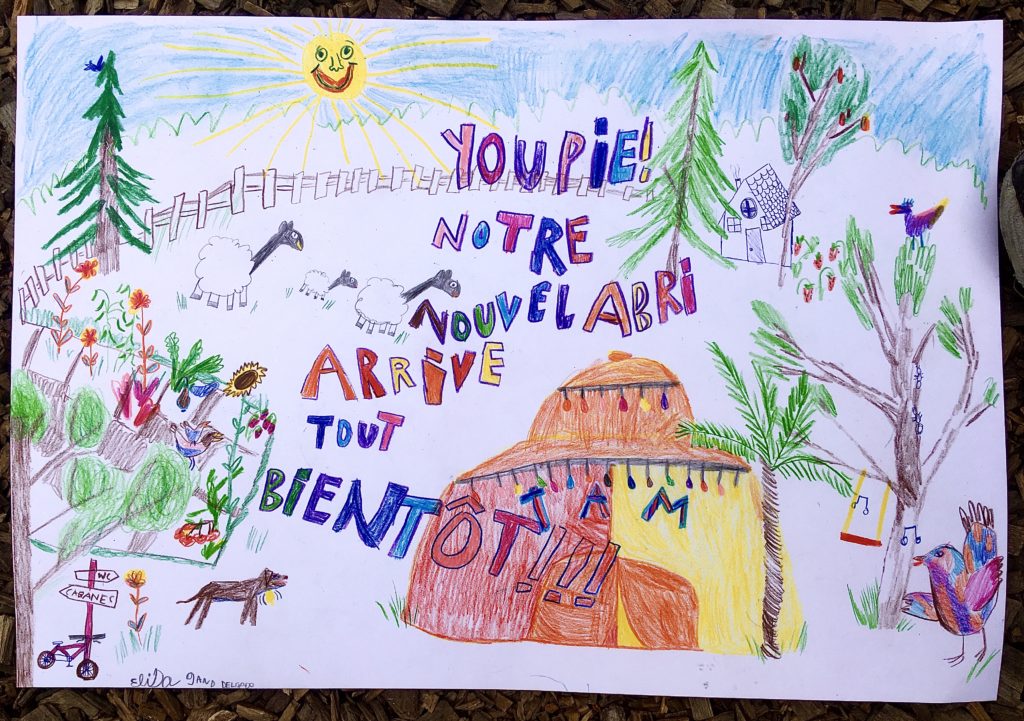 YOUPIE!
NOTRE
NOUVEL ABRI
ARRIVE
TOUT
BIENTÔT!!!!
JAM
WC
CABANES
Elisa 9 AND DELGADO